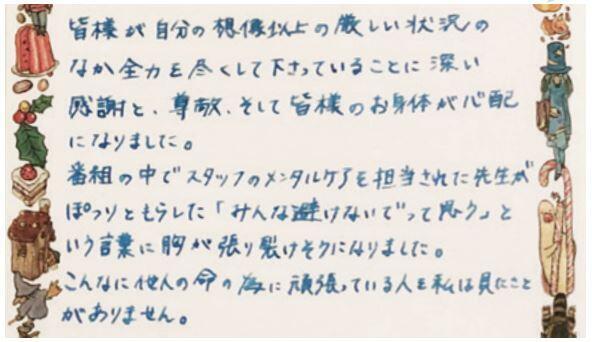 皆様が自分の想像以上の厳しい状況の
なか全力を尽くして下さっていることに深い
感謝と、尊敬、そして皆様のお身体が心配
になりました。
番組の中でスタッフのメンタルケアを担当された先生が
ぽつりともらした「みんな避けないでって思う」と
いう言葉に胸が張り裂けそうになりました。
こんなに他人の命の為に頑張っている人を私は見たこと
がありません。